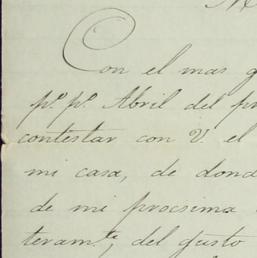 M
Con el mas g
pº. pº. Abril del pr
contestar con V. el
mi casa, de dond
de mi procsima
teramte, del gusto